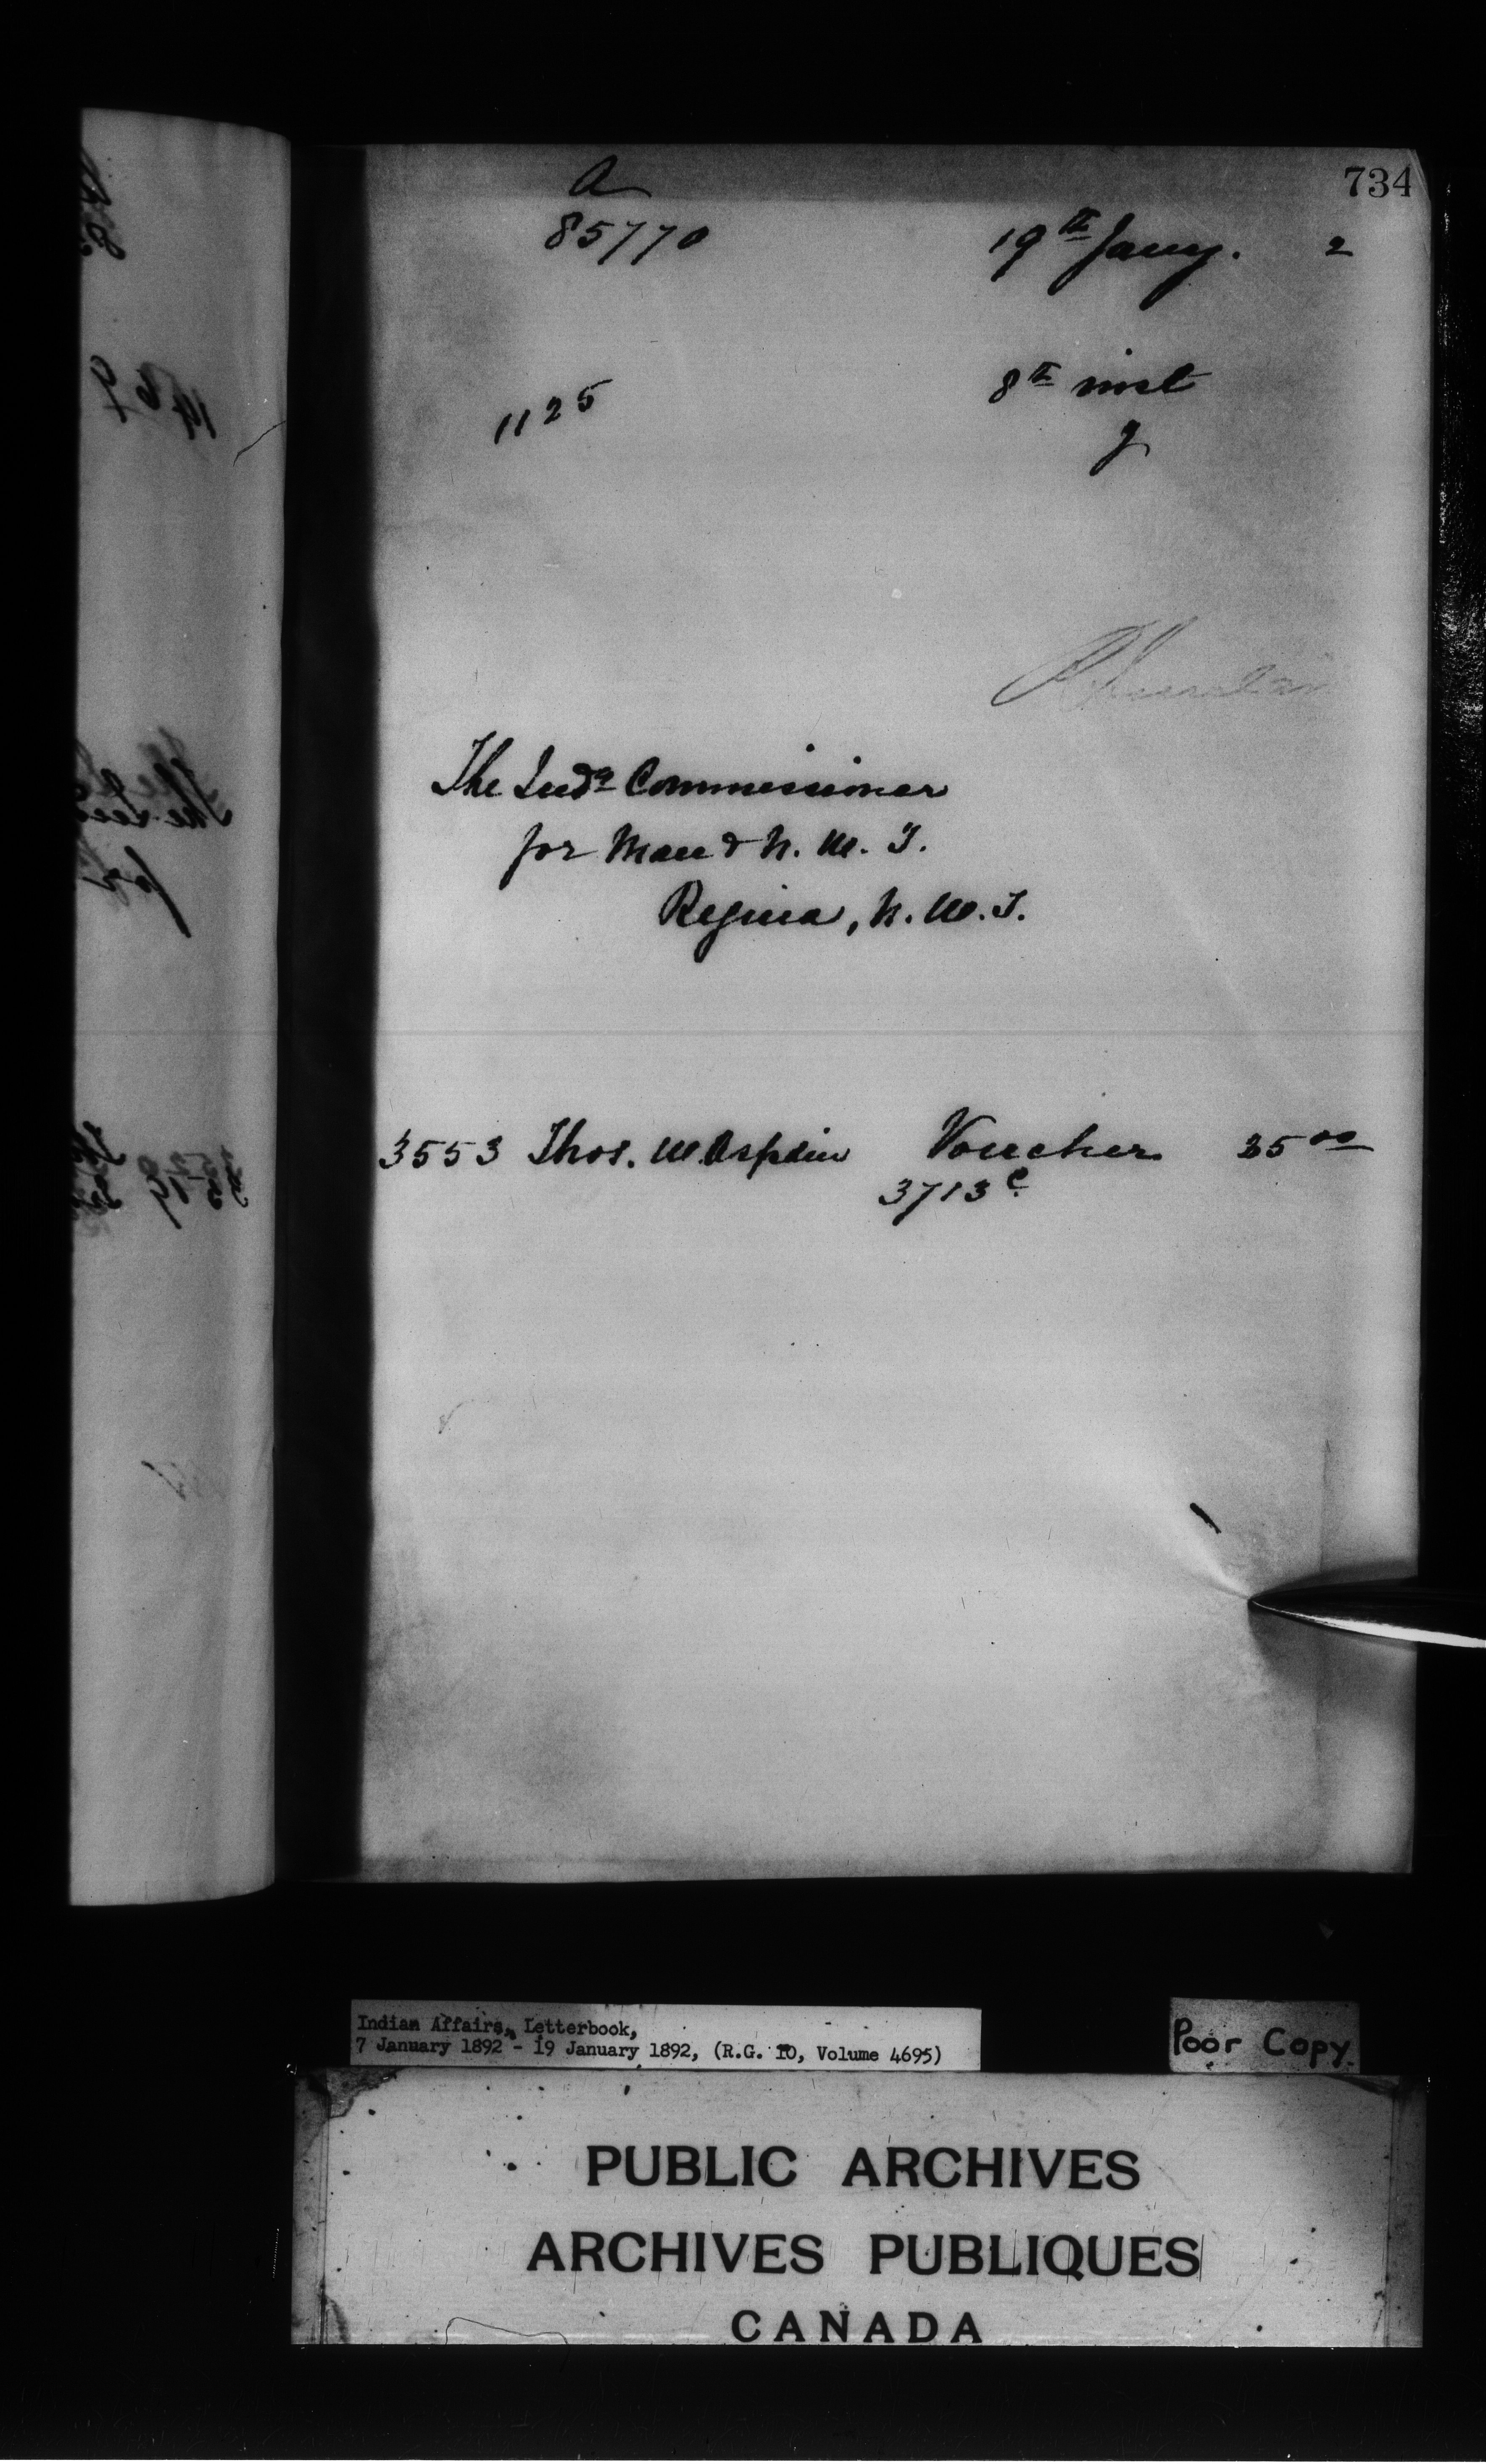 734
a
85770 19th Jany. 2
1125 8th inst
The Indn Commissioner
for Man & N. W. T.
Regina, N. W. T.
3553 Thos. W. Aspdin Voucher 35 00
3713 c
Indian Affairs, Letterbook,
7 January 1892 - 19 January 1892, (R.G. 10, Volume 4695)
Poor Copy.
PUBLIC ARCHIVES
ARCHIVES PUBLIQUES
CANADA